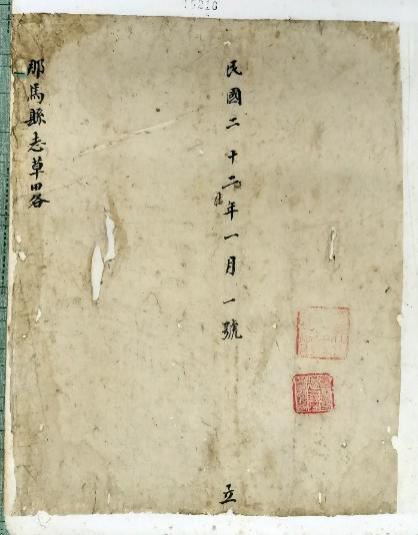 民國二十二年一月一號
立
那馬縣志草畧